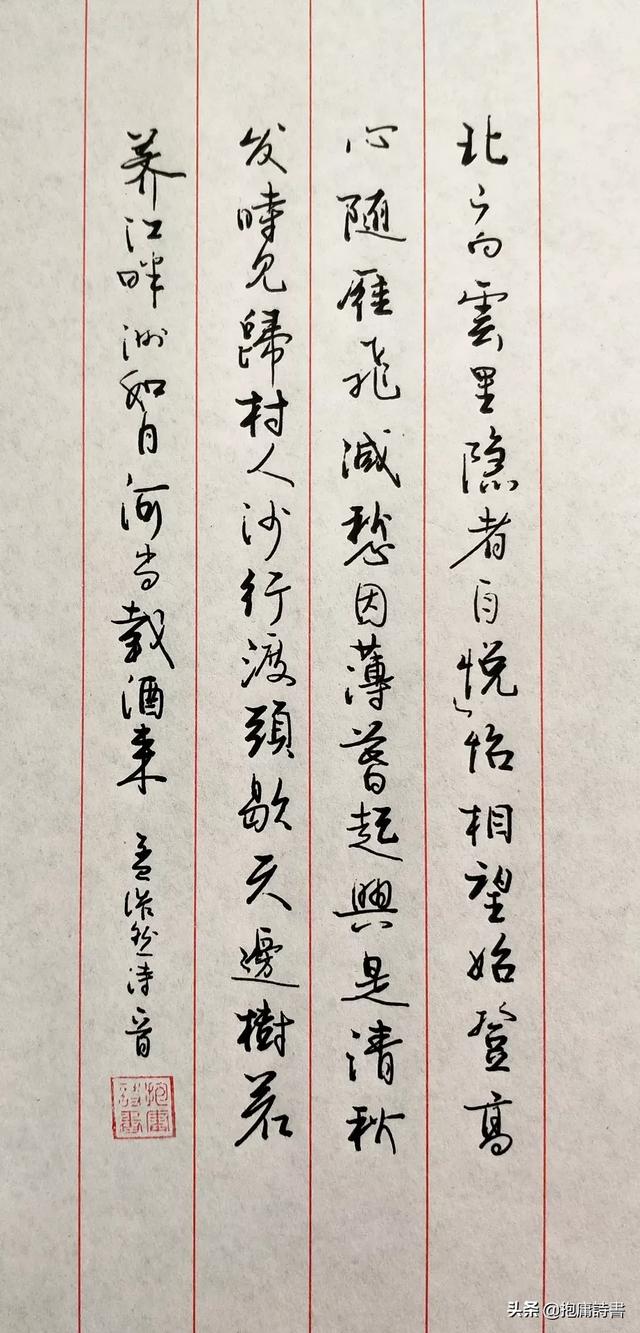 北山白雲里隐者自悦怡相望始登高
心随雁飛滅愁因薄暮起興是清秋
发時见歸村人沙行渡頭歇天邊樹若
荠江畔洲如月何当載酒来 孟浩然诗
抱庸詩書
头条 @抱庸詩書